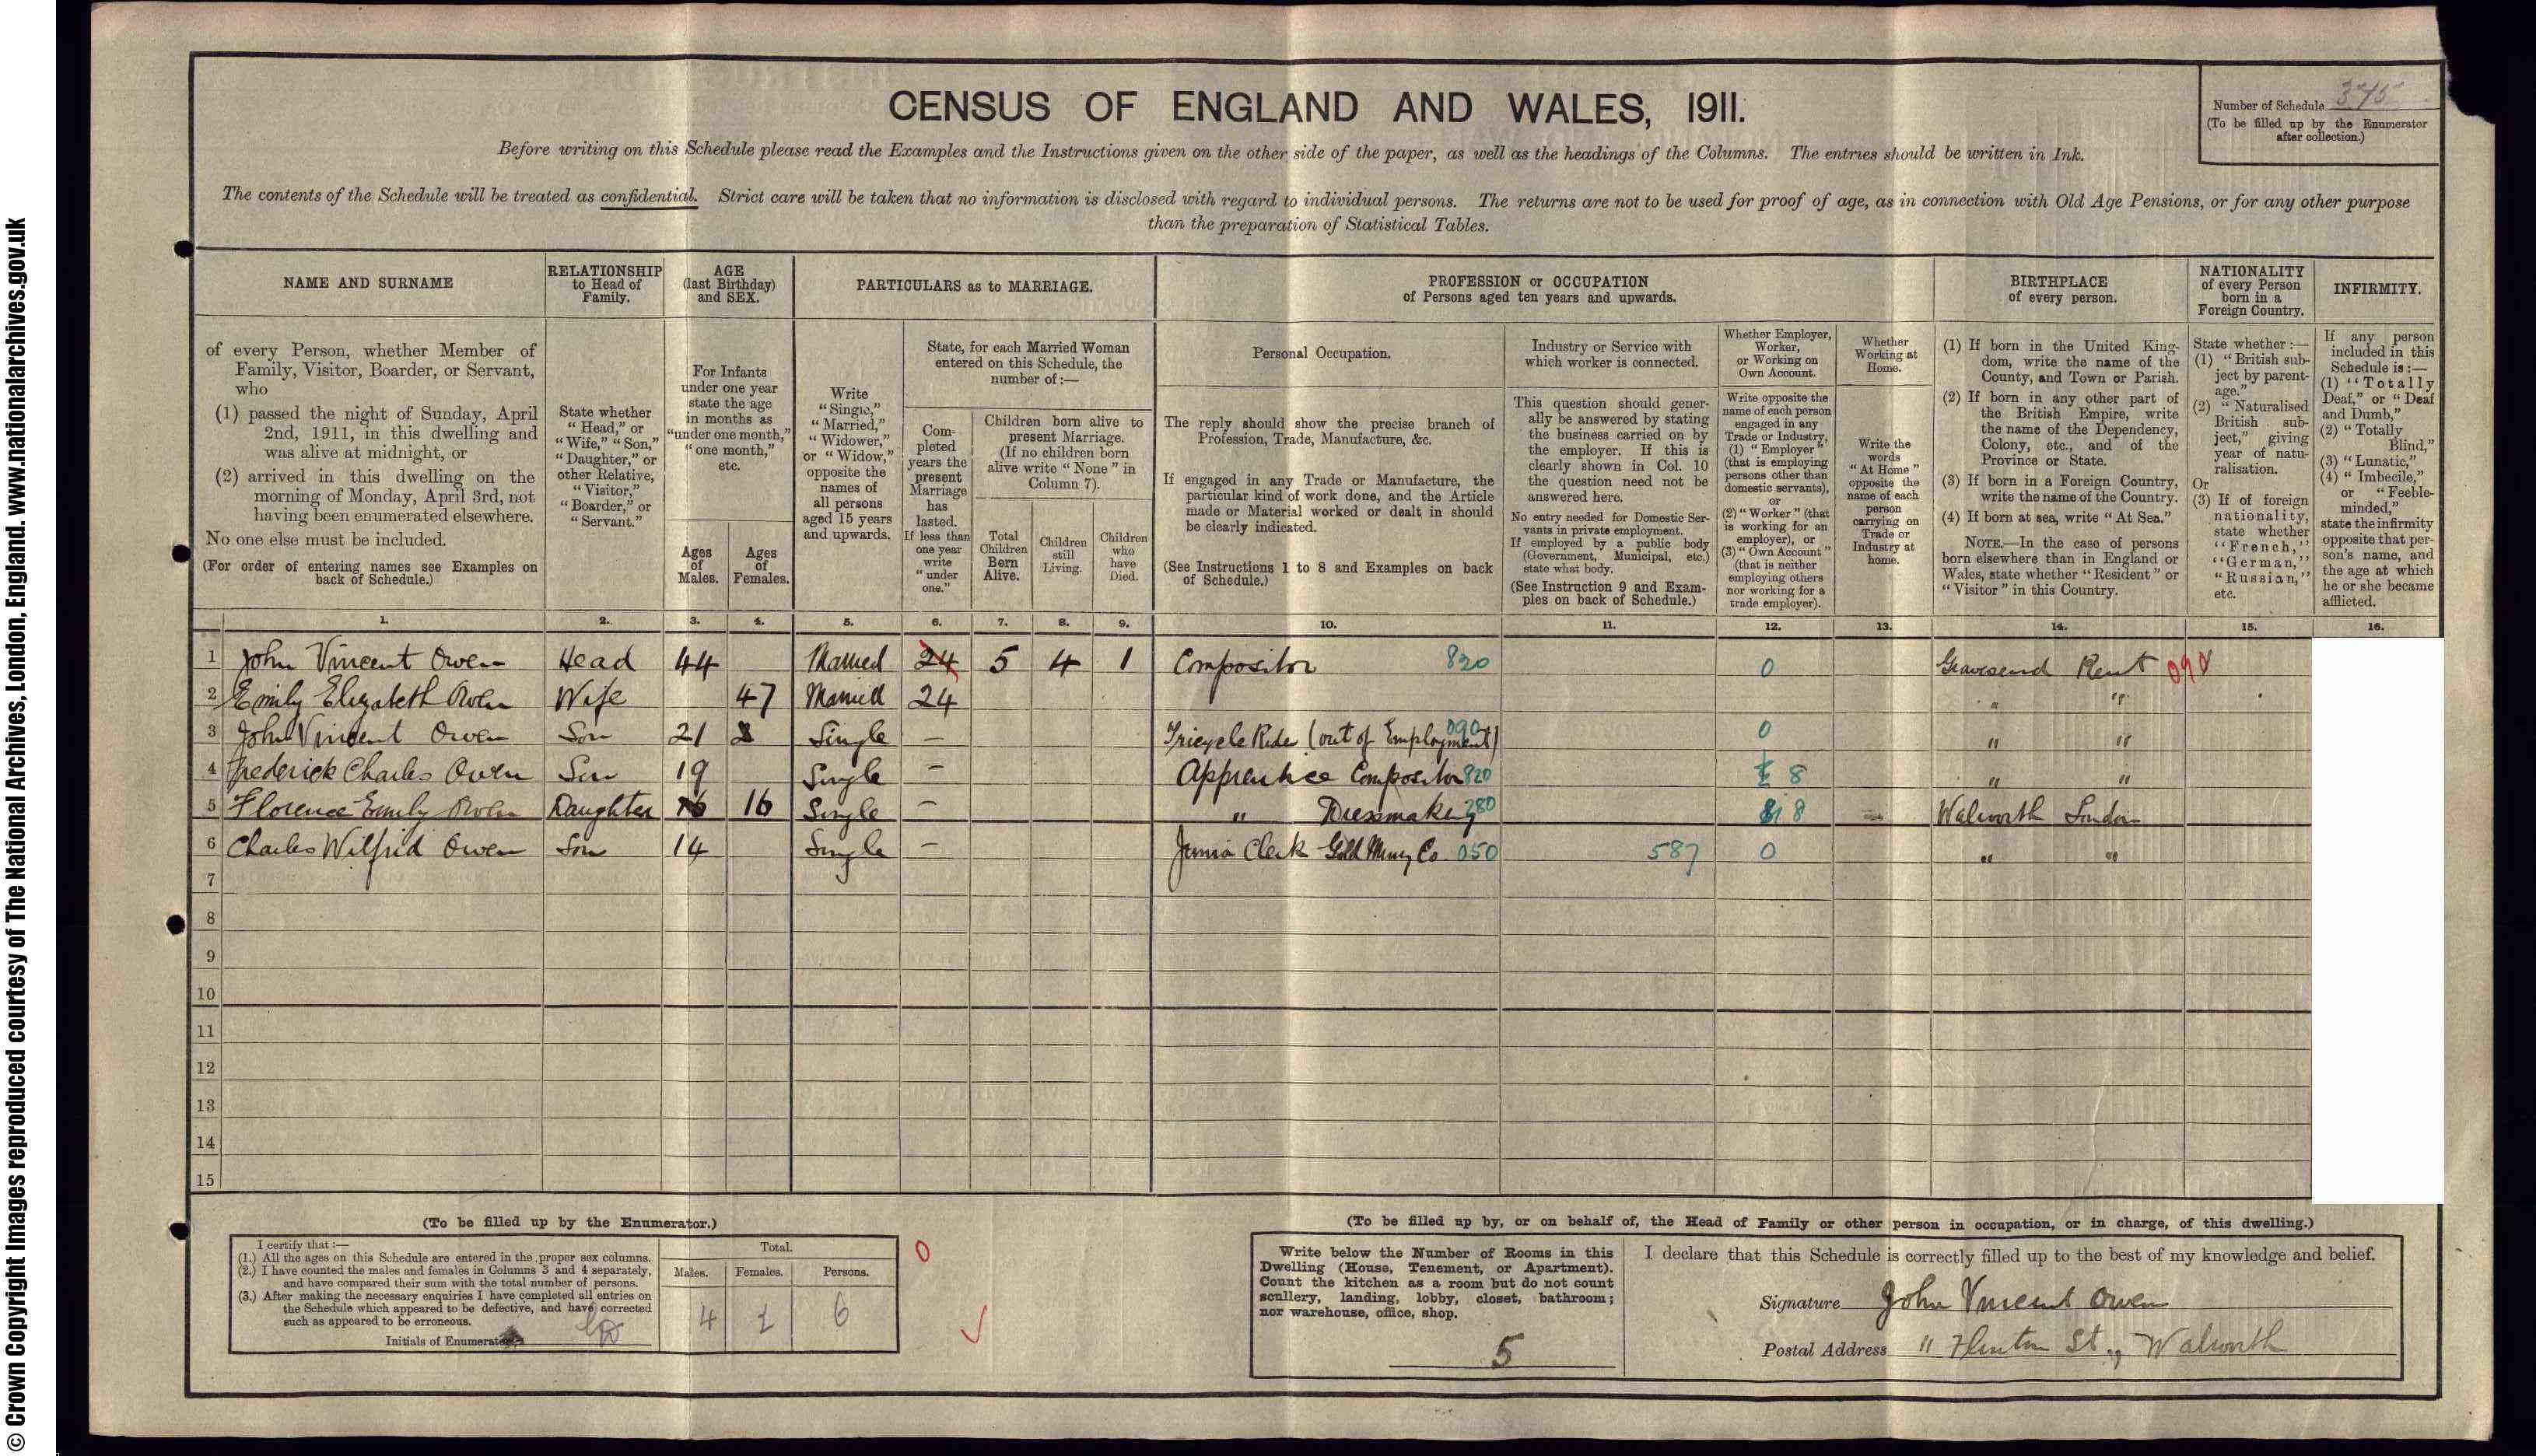 © Crown Copyright Images reproduced courtesy of The National Archives, London, England. www.nationalarchives.gov.uk
CENSUS OF ENGLAND AND WALES, 1911.
Number of Schedule
(To be filled up by the Enumerator
after collection.)
Before writing on this Schedule please read the Examples and the Instructions given on the other side of the paper, as well as the headings of the Columns. The entries should be written in Ink.
The contents of the Schedule will be treated as confidential. Strict care will be taken that no information is disclosed with regard to individual persons. The returns are not to be used for proof of age, as in connection with Old Age Pensions, or for any other purpose
than the preparation of Statistical Tables.
NAME AND SURNAME
of every Person, whether Member of
Family, Visitor, Boarder, or Servant,
who
(1) passed the night of Sunday, April
2nd, 1911, in this dwelling and
was alive at midnight, or
(2) arrived in this dwelling on the
morning of Monday, April 3rd, not
having been enumerated elsewhere.
No one else must be included.
(For order of entering names see Examples on
back of Schedule.)
RELATIONSHIP
to Head of
Family.
State whether
"Head," or
"Wife," "Son,"
"Daughter," or
other Relative,
"Visitor,"
"Boarder," or
"Servant."
AGE
(last Birthday)
and SEX.
For Infants
under one year
state the age
in months as
"under one month,"
"one month,"
etc.
Ages
of
Males.
Ages
of
Females.
PARTICULARS as to MARRIAGE.
Write
"Single,"
"Married,"
"Widower,"
or "Widow,"
opposite the
names of
all persons
aged 15 years
and upwards.
State, for each Married Woman
entered on this Schedule, the
number of:—
Com-
pleted
years the
present
Marriage
has
lasted.
If less than
one year
write
"under
one."
Children born alive to
present Marriage.
(If no children born
alive write "None" in
Column 7).
Total
Children
Born
Alive.
Children
still
Living.
Children
who
have
Died.
PROFESSION or OCCUPATION
of Persons aged ten years and upwards.
Personal Occupation.
The reply should show the precise branch of
Profession, Trade, Manufacture, &c.
If engaged in any Trade or Manufacture, the
particular kind of work done, and the Article
made or Material worked or dealt in should
be clearly indicated.
(See Instructions 1 to 8 and Examples on back
of Schedule.)
Industry or Service with
which worker is connected.
This question should gener-
ally be answered by stating
the business carried on by
the employer. If this is
clearly shown in Col. 10
the question need not be
answered here.
No entry needed for Domestic Ser-
vants in private employment.
If employed by a public body
(Government, Municipal, etc.)
state what body.
(See Instruction 9 and Exam-
ples on back of Schedule.)
Whether Employer,
Worker,
or Working on
Own Account.
Write opposite the
name of each person
engaged in any
Trade or Industry,
(1) "Employer"
(that is employing
persons other than
domestic servants),
or
(2) "Worker" (that
is working for an
employer), or
(3) "Own Account"
(that is neither
employing others
nor working for a
trade employer).
Whether
Working at
Home.
Write the
words
"At Home"
opposite the
name of each
person
carrying on
Trade or
Industry at
home.
BIRTHPLACE
of every person.
(1) If born in the United King-
dom, write the name of the
County, and Town or Parish.
(2) If born in any other part of
the British Empire, write
the name of the Dependency,
Colony, etc., and of the
Province or State.
(3) If born in a Foreign Country,
write the name of the Country.
(4) If born at sea, write "At Sea."
NOTE.—In the case of persons
born elsewhere than in England or
Wales, state whether "Resident" or
"Visitor" in this Country.
NATIONALITY
of every Person
born in a
Foreign Country.
State whether:—
(1) "British sub-
ject by parent-
age."
(2) "Naturalised
British sub-
ject," giving
year of natu-
ralisation.
Or
(3) If of foreign
nationality,
state whether
"French,"
"German,"
"Russian,"
etc.
INFIRMITY.
If any person
included in this
Schedule is:—
(1) "Totally
Deaf," or "Deaf
and Dumb,"
(2) "Totally
Blind,"
(3) "Lunatic,"
(4) "Imbecile,"
or "Feeble-
minded,"
state the infirmity
opposite that per-
son's name, and
the age at which
he or she became
afflicted.
1. 2. 3. 4. 5. 6. 7. 8. 9. 10. 11. 12. 13. 14. 15. 16.
1 John Vincent Owen Head 44 Married 24 5 4 1 Compositor 820 0 Gravesend Kent 090
2 Emily Elizabeth Owen Wife 47 Married 24 " "
3 John Vincent Owen Son 21 Single — Tricycle Rider (out of Employment) 090 0 " "
4 Frederick Charles Owen Son 19 Single — Apprentice Compositor 820 8 " "
5 Florence Emily Owen Daughter 16 Single — " Dressmaking 280 8 Walworth London
6 Charles Wilfrid Owen Son 14 Single — Junior Clerk Gold Mining Co 050 587 0 " "
7
8
9
10
11
12
13
14
15
(To be filled up by the Enumerator.)
I certify that:—
(1.) All the ages on this Schedule are entered in the proper sex columns.
(2.) I have counted the males and females in Columns 3 and 4 separately,
and have compared their sum with the total number of persons.
(3.) After making the necessary enquiries I have completed all entries on
the Schedule which appeared to be defective, and have corrected
such as appeared to be erroneous.
Initials of Enumerator
Total.
Males. Females. Persons.
4 2 6
0
(To be filled up by, or on behalf of, the Head of Family or other person in occupation, or in charge, of this dwelling.)
Write below the Number of Rooms in this
Dwelling (House, Tenement, or Apartment).
Count the kitchen as a room but do not count
scullery, landing, lobby, closet, bathroom;
nor warehouse, office, shop.
5
I declare that this Schedule is correctly filled up to the best of my knowledge and belief.
Signature John Vincent Owen
Postal Address 11 Flinton St., Walworth